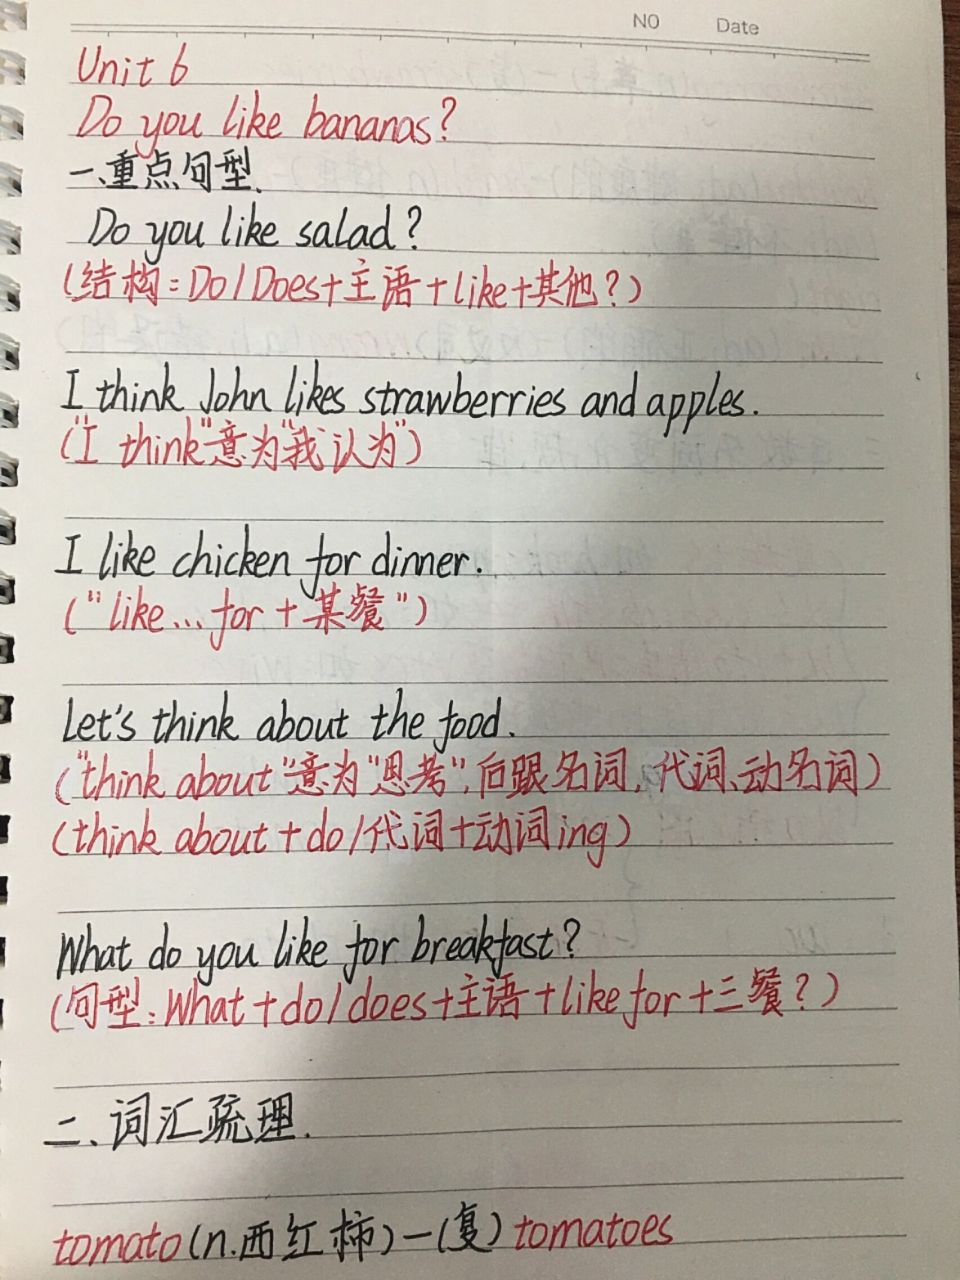 NO Date
Unit 6
Do you like bananas?
一、重点句型.
Do you like salad?
(结构:Do/Does+主语+like+其他?)
I think John likes strawberries and apples.
("I think"意为"我认为")
I like chicken for dinner.
("like... for + 某餐")
Let's think about the food.
("think about"意为"思考",后跟名词,代词、动名词)
(think about+do/代词+动词ing)
What do you like for breakfast?
(句型:What+do/does+主语+like for+三餐?)
二、词汇疏理.
tomato(n.西红柿)—(复)tomatoes